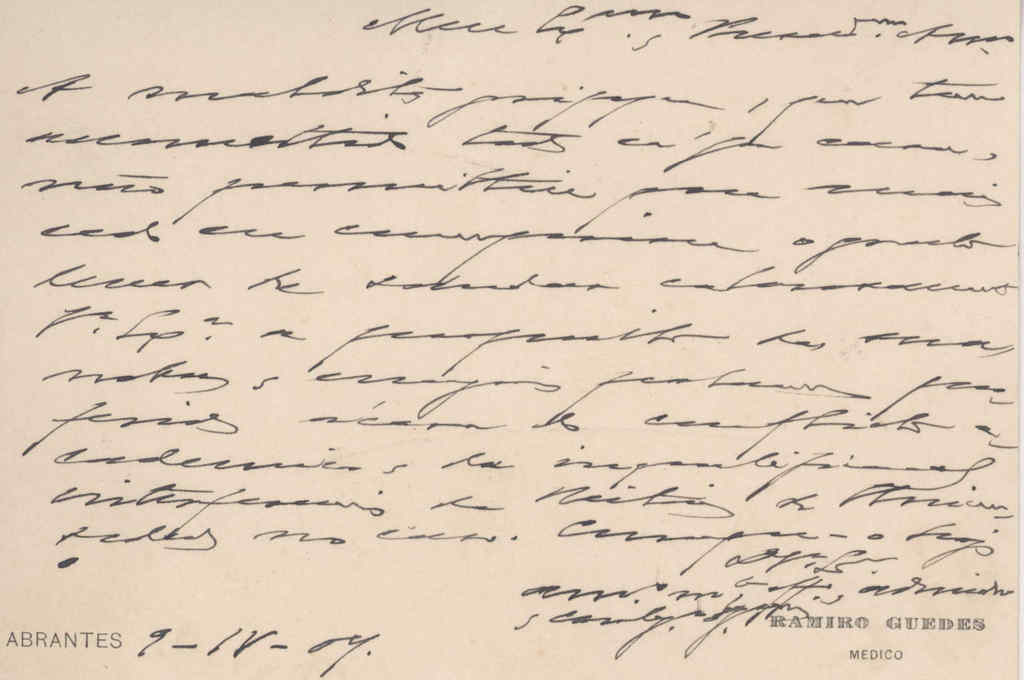 Meu Ex.mo e Presad.mo Am.
A maldita grippe, que tem
accommettido todos cá por casa,
não permittiu que mais
cedo eu cumprisse o grato
dever de saudar calorosamente
V.ª Ex.ª a proposito das suas
nobres e energicas palavras pro-
feridas ácerca do conflicto a-
cademico e da inqualificavel
interferencia do Reitor da Univer-
sidade no caso. Cumpro-o hoje
De V.ª Ex.ª
am.º m.to aff.º, admirador
e
ABRANTES 9-IV-07.
RAMIRO GUEDES
MEDICO